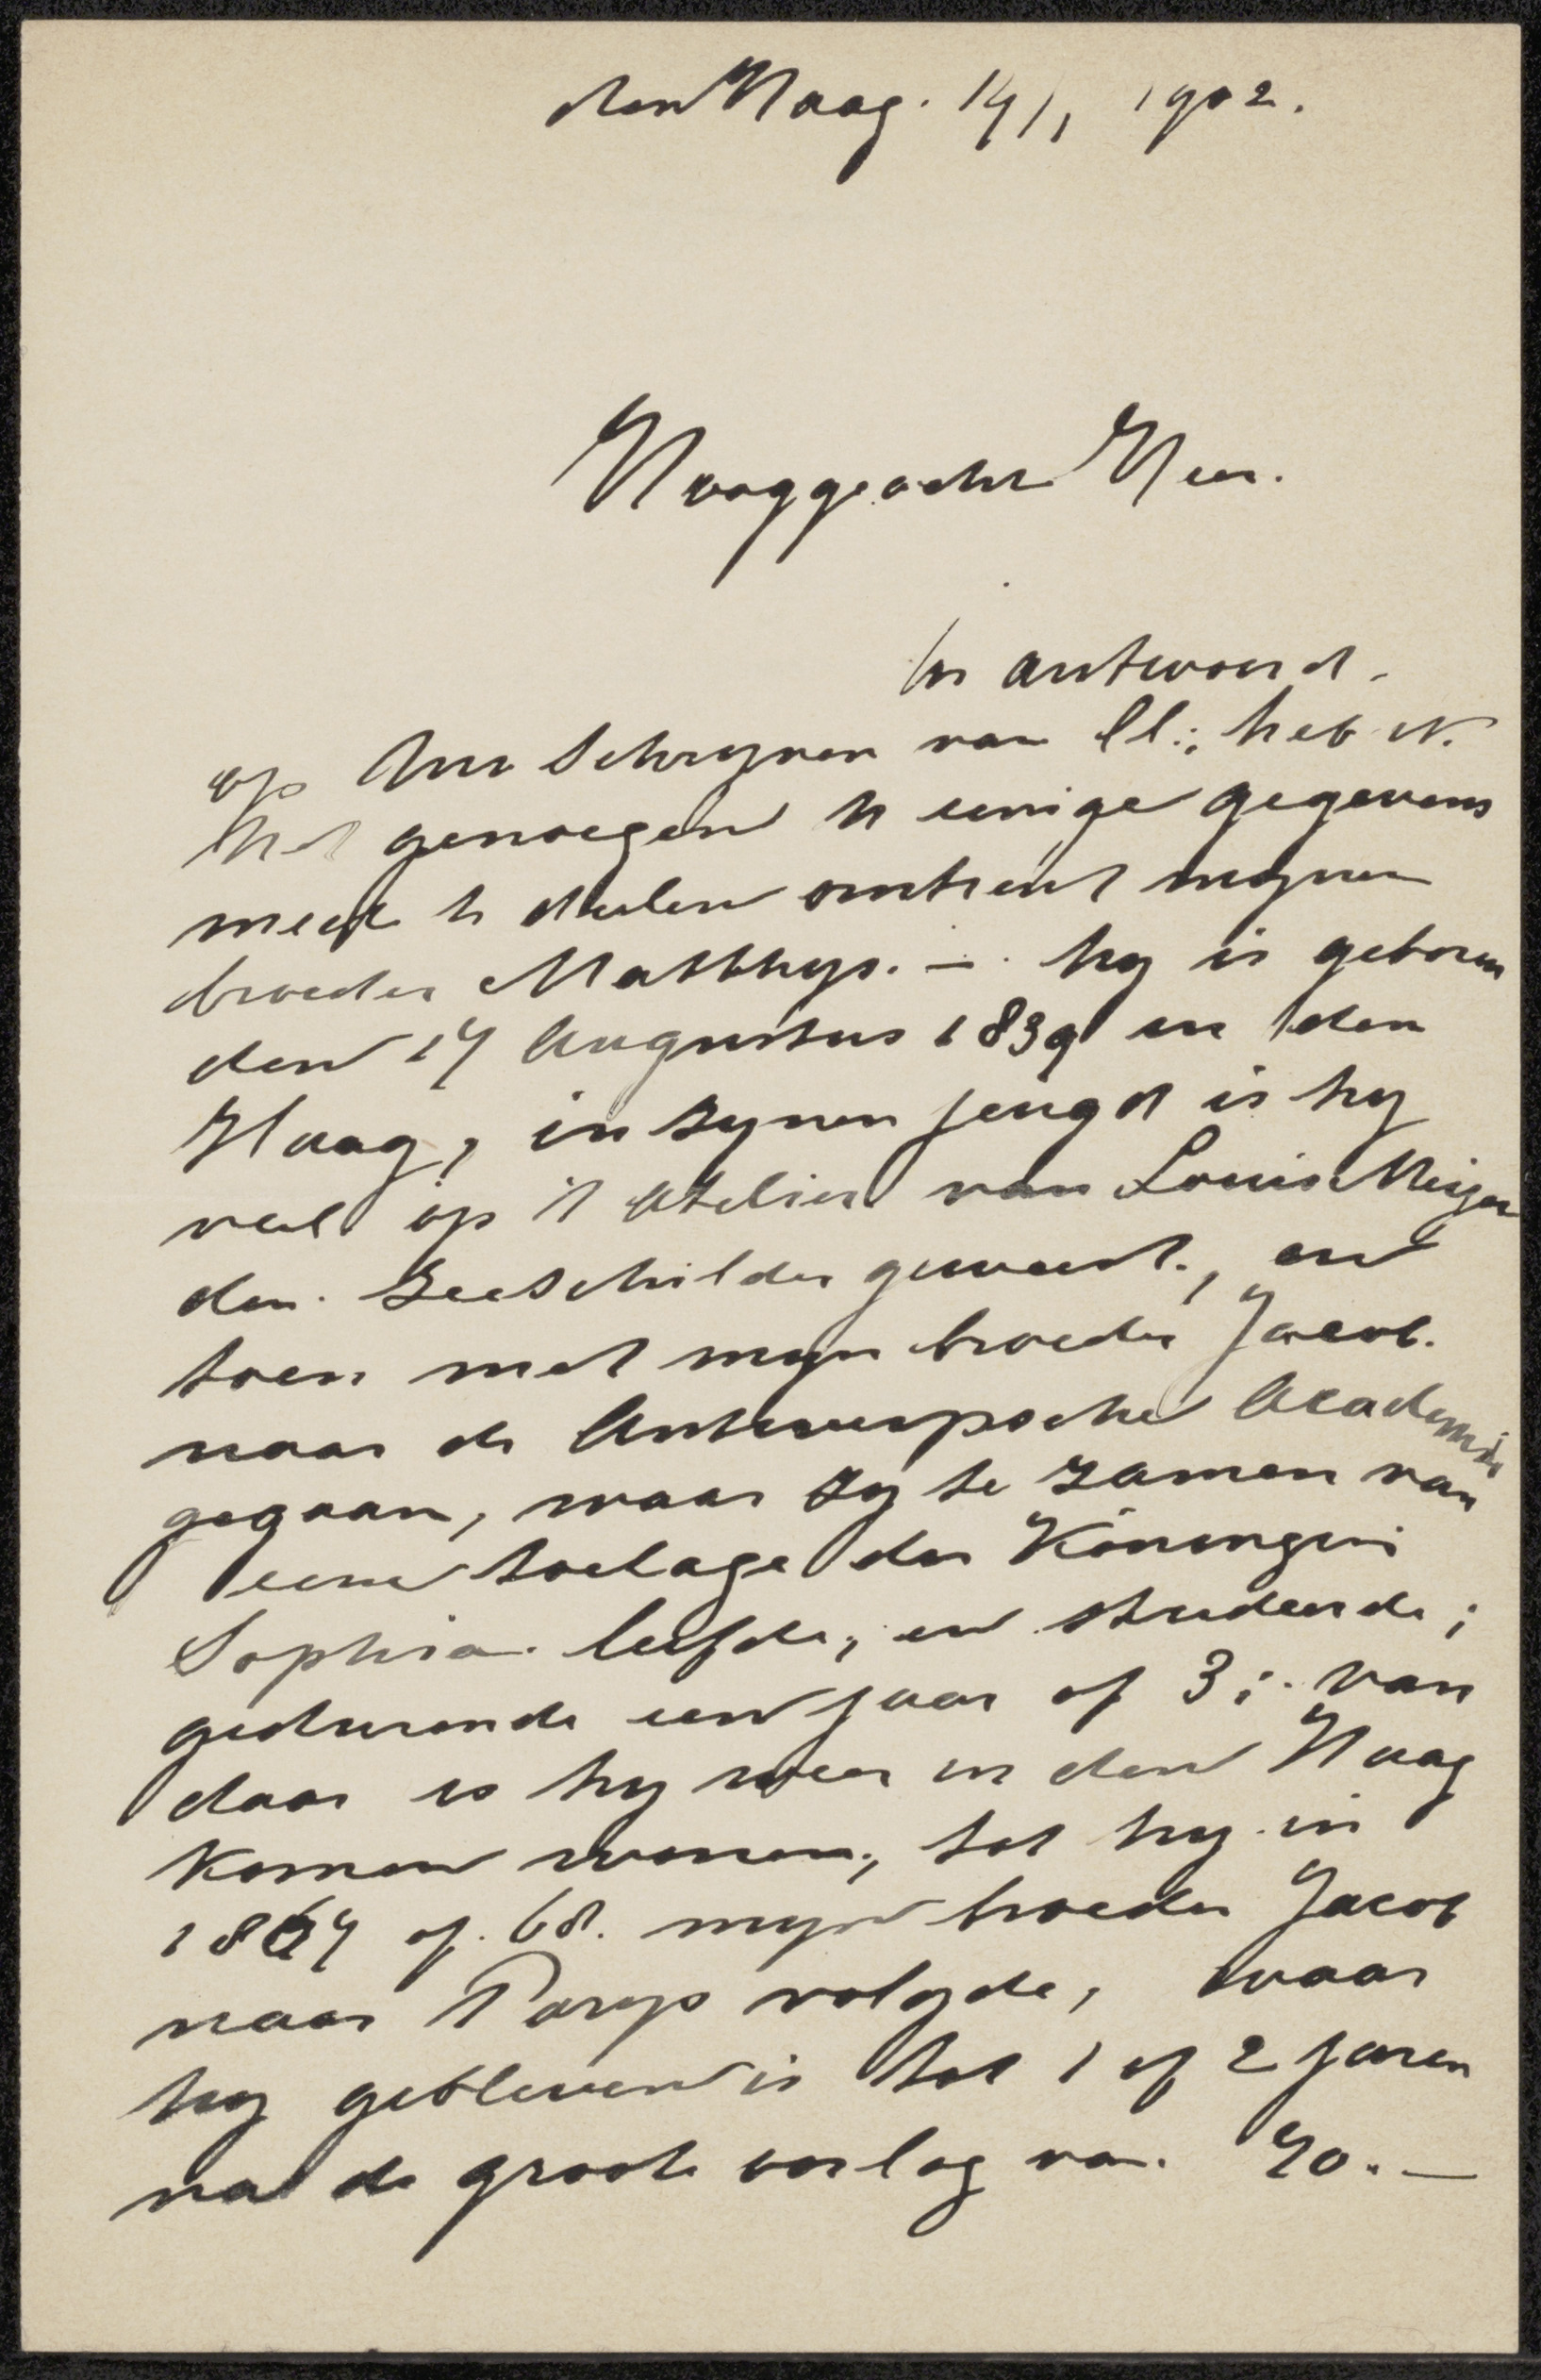 den Haag. 14/1 1902.
Hooggeachte Heer.
In antwoord.
op Uw schryven van ll:, heb ik
het genoegen U eenige gegevens
meede te deelen omtrent mynen
broeder Matthys. — hy is geboren
den 17 Augustus 1839 in den
Haag, in zynen jeugd is hy
veel op 't atelier van Louis Meijer
den zeeschilder geweest., en
toen met myn broeder Jacob.
naar de Antwerpsche Academie
gegaan, waar zy te zamen van
eene toelage der Koningin
Sophia. leefde, en studeerde;
gedurende een jaar of 3; van
daar is hy weer in den Haag
komen wonen, tot hy in
1867 of. 68. myn broeder Jacob
naar Parys volgde, waar
hy gebleven is tot 1 of 2 jaren
na de groote oorlog van. 70. —